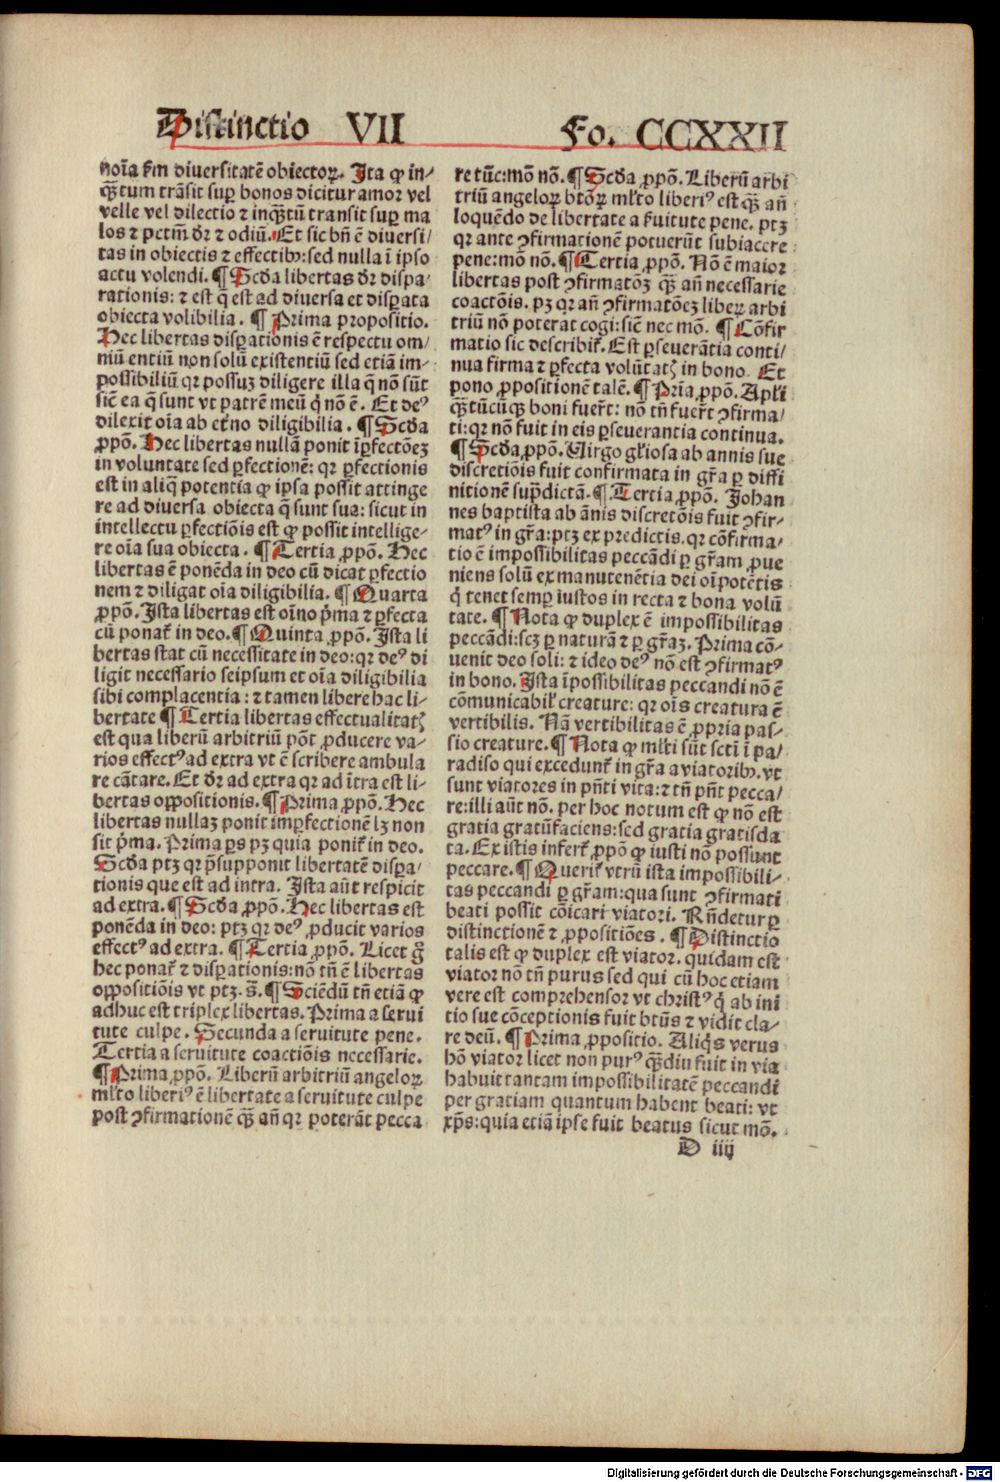 Distinctio VII Fo. CCXXII
noīa ẜm diuersitatē obiectoꝝ. Ita ꝙ in-
qꝫtum trāsit suꝑ bonos dicitur amor vel
velle vel dilectio ⁊ inqꝫtū transit suꝑ ma
los ⁊ pctm̄ dr̄ ⁊ odiū. Et sic bn̄ ē diuersi/
tas in obiectis ⁊ effectibꝫ: sed nulla ī ipso
actu volendi. ¶ Scd̄a libertas dr̄ dispa-
rationis: ⁊ est q̄ est ad diuersa et disꝑata
obiecta volibilia. ¶ Prima propositio.
Hec libertas disꝑationis ē respectu om-
niū entiū non solū existentiū sed etiā im-
possibiliū qꝛ possuꝫ diligere illa q̄ nō sūt
sic̄ ea q̄ sunt vt patrē meū q̇ nō ē. Et deꝰ
dilexit oīa ab et̄no diligibilia. ¶ Scd̄a
ꝓpō. Hec libertas nullā ponit īꝑfectōeꝫ
in voluntate sed ꝑfectionē: qꝛ ꝑfectionis
est in aliq̄ potentia ꝙ ipsa possit attinge
re ad diuersa obiecta q̄ sunt sua: sicut in
intellectu ꝑfectiōis est ꝙ possit intellige-
re oīa sua obiecta. ¶ Tertia ꝓpō. Hec
libertas ē ponēda in deo cū dicat ꝑfectio
nem ⁊ diligat oīa diligibilia. ¶ Quarta
ꝓpō. Ista libertas est oīno pͥma ⁊ ꝑfecta
cū ponat̃ in deo. ¶ Quinta ꝓpō. Ista li
bertas stat cū necessitate in deo: qꝛ deꝰ di
ligit necessario seipsum et oīa diligibilia
sibi complacentia: ⁊ tamen libere hac li-
bertate ¶ Tertia libertas effectualitatꝭ
est qua liberū arbitriū pōt ꝓducere va-
rios effectꝰ ad extra vt ē scribere ambula
re cātare. Et dr̄ ad extra qꝛ ad ītra est li-
bertas oppositionis. ¶ Prima ꝓpō. Hec
libertas nullaꝫ ponit imꝑfectionē lꝫ non
sit pͥma. Prima ꝑs pꝫ quia ponit̃ in deo.
Scd̄a ptꝫ qꝛ p̄supponit libertatē disꝑa-
tionis que est ad intra. Ista aūt respicit
ad extra. ¶ Scd̄a ꝓpō. Hec libertas est
ponēda in deo: ptꝫ qꝛ deꝰ ꝓducit varios
effectꝰ ad extra. ¶ Tertia ꝓpō. Licet g̊
hec ponat̃ ⁊ disꝑationis: nō tn̄ ē libertas
oppositiōis vt ptꝫ. s̄. ¶ Sciēdū tn̄ etiā ꝙ
adhuc est triplex libertas. Prima a serui
tute culpe. Secunda a seruitute pene.
Tertia a seruitute coactiōis necessarie.
¶ Prima ꝓpō. Liberū arbitriū angeloꝝ
ml̄to liberiꝰ ē libertate a seruitute culpe
post ꝯfirmationē qꝫ̄ an̄ qꝛ poterāt pecca
re tūc: mō nō. ¶ Scd̄a ꝓpō. Liberū arbi
triū angeloꝝ btōꝝ ml̄to liberiꝰ est qꝫ̄ an̄
loquēdo de libertate a ẜuitute pene. ptꝫ
qꝛ ante ꝯfirmationē potuerūt subiacere
pene: mō nō. ¶ Tertia ꝓpō. Nō ē maior
libertas post ꝯfirmatōꝫ qꝫ̄ an̄ necessarie
coactōis. pꝫ qꝛ an̄ ꝯfirmatōeꝫ libeꝝ arbi
triū nō poterat cogi: sic̄ nec mō. ¶ Cōfir
matio sic describit̃. Est ꝑseuerātia conti/
nua firma ⁊ ꝑfecta volūtatꝭ in bono. Et
pono ꝓpositionē talē. ¶ Pr̄ia ꝓpō. Apl̄i
qꝫ̄tūcūqꝫ boni fuer̄t: nō tn̄ fuer̄t ꝯfirma/
ti: qꝛ nō fuit in eis ꝑseuerantia continua.
¶ Scd̄a ꝓpō. Uirgo gl̄iosa ab annis sue
discretiōis fuit confirmata in gr̄a ꝑ diffi
nitionē sup̄dictā. ¶ Tertia ꝓpō. Johan
nes baptista ab ānis discretōis fuit ꝯfir-
matꝰ in gr̄a: ptꝫ ex predictis. qꝛ cōfirma/
tio ē impossibilitas peccādi ꝑ gr̄am ꝓue
niens solū ex manutenētia dei oīpotētis
q̇ tenet semꝑ iustos in recta ⁊ bona volū
tate. ¶ Nota ꝙ duplex ē impossibilitas
peccādi: scꝫ ꝑ naturā ⁊ ꝑ gr̄aꝫ. Prima cō-
uenit deo soli: ⁊ ideo deꝰ nō est ꝯfirmatꝰ
in bono. Ista īpossibilitas peccandi nō ē
cōmunicabil̓ creature: qꝛ oīs creatura ē
vertibilis. Nā vertibilitas ē ꝓpria pas-
sio creature. ¶ Nota ꝙ ml̄ti sūt scti ī pa/
radiso qui excedunt̃ in gr̄a a viatoribꝫ. vt
sunt viatores in pn̄ti vita: ⁊ tn̄ pn̄t pecca/
re: illi aūt nō. per hoc notum est ꝙ nō est
gratia gratūfaciens: sed gratia gratisda
ta. Ex istis infert̃ ꝓpō ꝙ iusti nō possunt
peccare. ¶ Querit̃ vtrū ista impossibili-
tas peccandi ꝑ gr̄am: qua sunt ꝯfirmati
beati possit cōicari viatori. Rn̄detur ꝑ
distinctionē ⁊ ꝓpositiōes. ¶ Distinctio
talis est ꝙ duplex est viator. quidam est
viator nō tn̄ purus sed qui cū hoc etiam
vere est comprehensor vt christꝰ q̇ ab ini
tio sue cōceptionis fuit btūs ⁊ vidit cla-
re deū. ¶ Prima ꝓpositio. Aliq̇s verus
hō viator licet non purꝰ qꝫ̄diu fuit in via
habuit tantam impossibilitatē peccandi
per gratiam quantum habent beati: vt
xp̄s: quia etiā ipse fuit beatus sicut mō.
D iiij
Digitalisierung gefördert durch die Deutsche Forschungsgemeinschaft - DFG